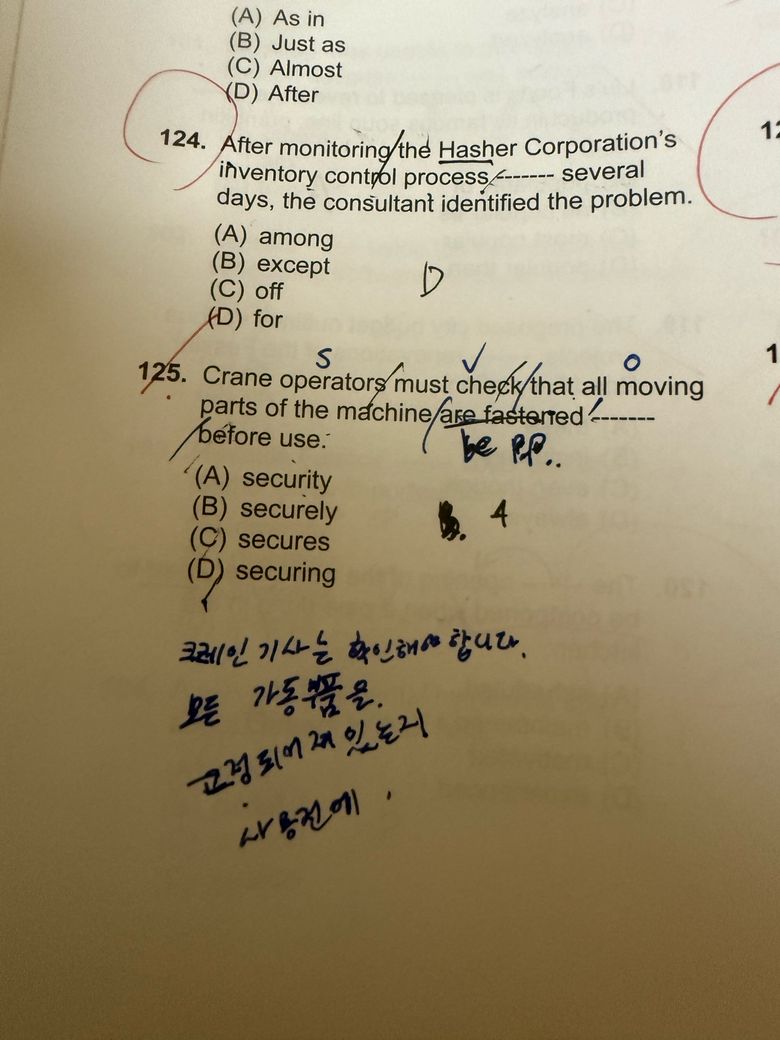 (A) As in
(B) Just as
(C) Almost
(D) After
124. After monitoring the Hasher Corporation's
inventory control process ------- several
days, the consultant identified the problem.
(A) among
(B) except
(C) off
(D) for
D
S V O
125. Crane operators must check that all moving
parts of the machine are fastened -------
before use.
be p.p..
(A) security
(B) securely
(C) secures
(D) securing
A
크레인 기사는 확인해야 합니다.
모든 가동부품을.
고정되어 있는지
사용전에.